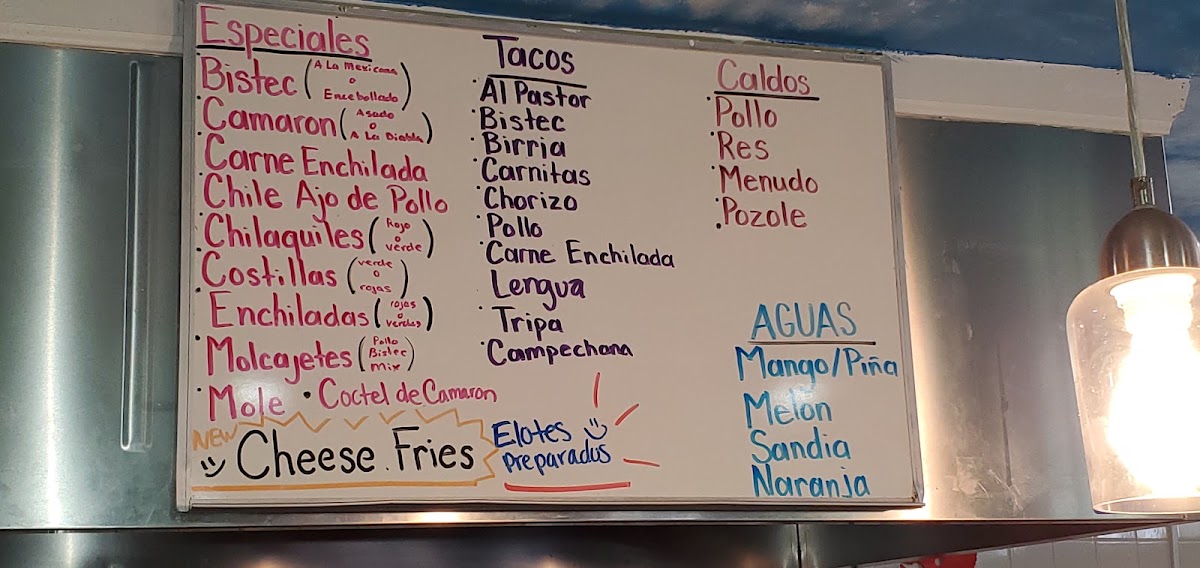 Especiales
Bistec (A La Mexicana o Encebollado)
Camaron (Asado o A La Diabla)
Carne Enchilada
Chile Ajo de Pollo
Chilaquiles (Rojo o verde)
Costillas (verde o rojas)
Enchiladas (rojas o verdes)
Molcajetes (Pollo Bistec mix)
Mole • Coctel de Camaron
NEW
Cheese Fries
Tacos
Al Pastor
Bistec
Birria
Carnitas
Chorizo
Pollo
Carne Enchilada
Lengua
Tripa
Campechana
Elotes
preparados
Caldos
Pollo
Res
Menudo
Pozole
AGUAS
Mango/Piña
Melon
Sandia
Naranja